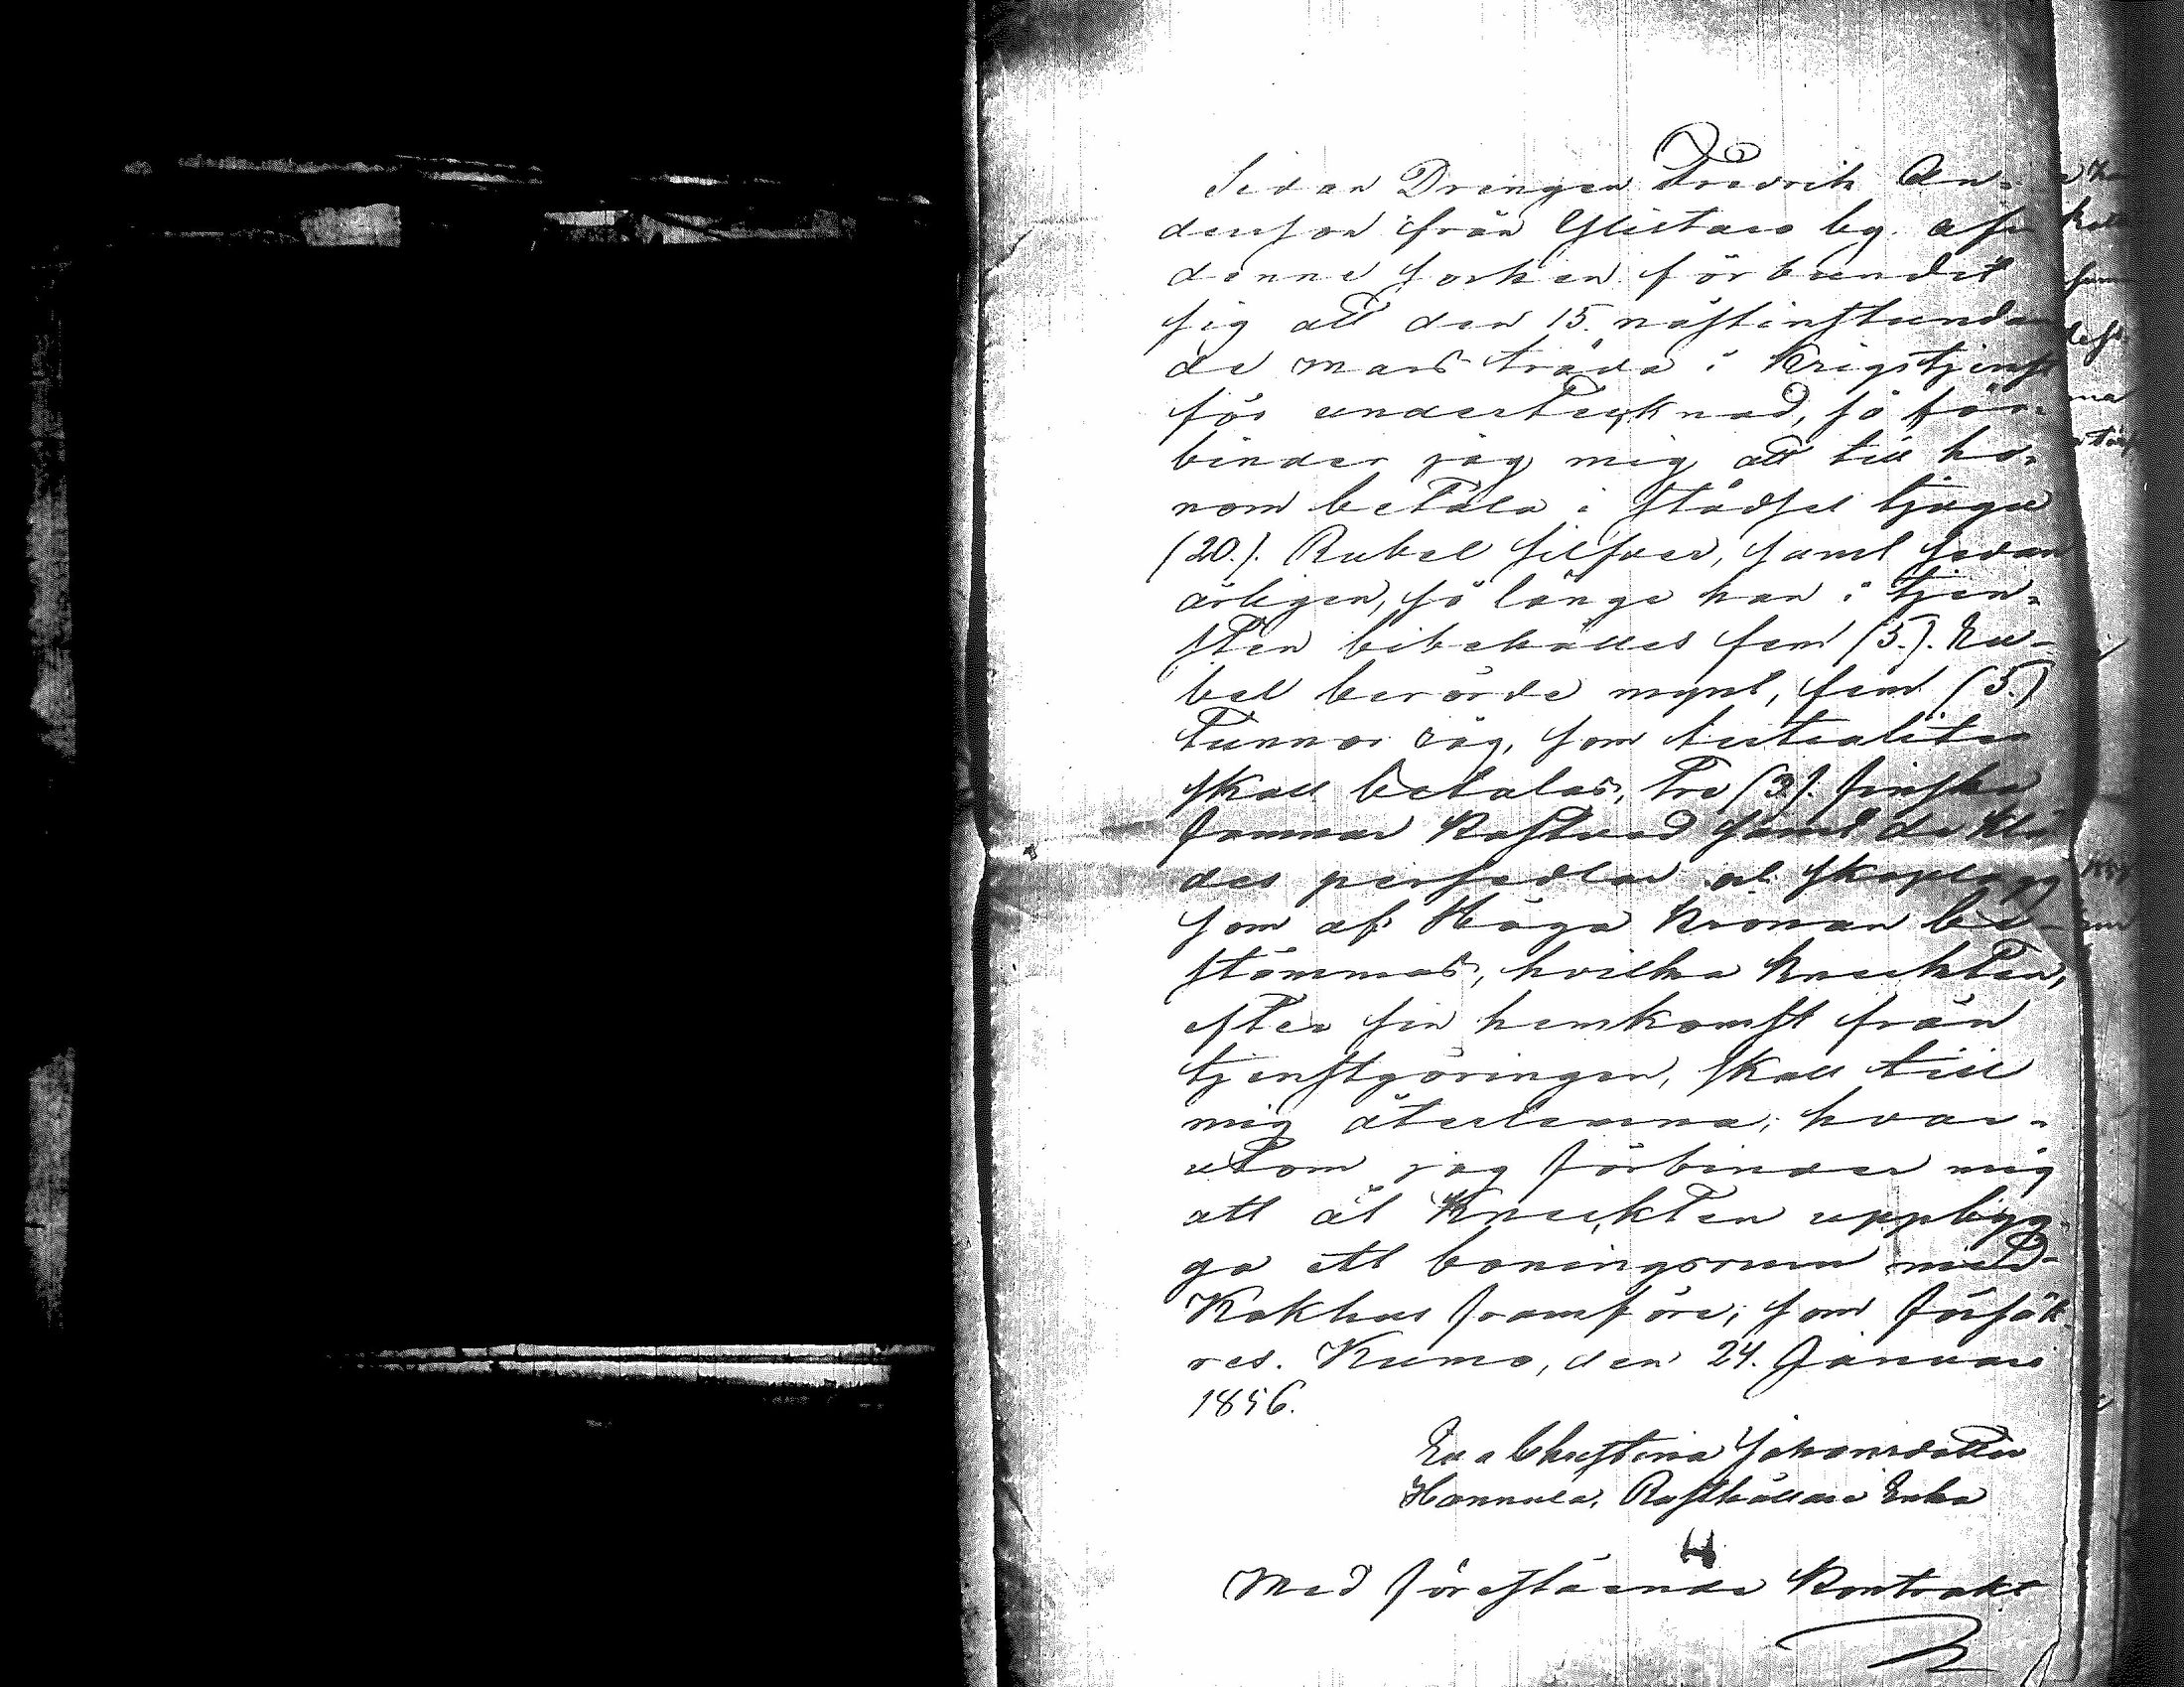 Sedan Drengen Fredrik An=
dersson från Ylistaro by af
denne socken förbundit
sig att den 15. nästinstundan
de Mars träda i Krigstjenst
för undertecknad, så för=
binder jag mig att till ho=
nom betala i städsel tjugu
(20.). Rubel silfver, samt sedan
årligen, så länge han i tjen=
sten bibehålles fem (5.). Ru-
bel berörde mynt, fem (5.)
Tunnor råg, som
skall betalas, tre (3.). finska
famnar Kastved samt de Klä
des persedlar och skoplagg
som af Höga Kronan be-
stämmas, hvilka Knekten,
efter sin hemkomst från
tjenstgöringen, skall till
mig återlemna; hvar=
utom jag förbinder mig
att åt Knekten uppbyg=
ga ett boningsrum med
Kokhus framföre; som försäk=
res. Kumo, den 24. Januari
1856.
Eva Christina Johansdotter
Hannula, Rusthållare Enka
Med förestående Kontrakt